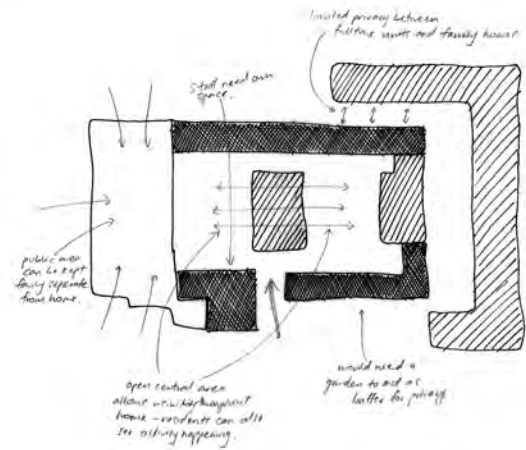 limited privacy between
fulltime units and family home.
Staff need own
space.
public area
can be kept
fairly separate
from home.
open central area
allows throughout
home - residents can also
see activity happening.
would need a
garden to act as
buffer for privacy.